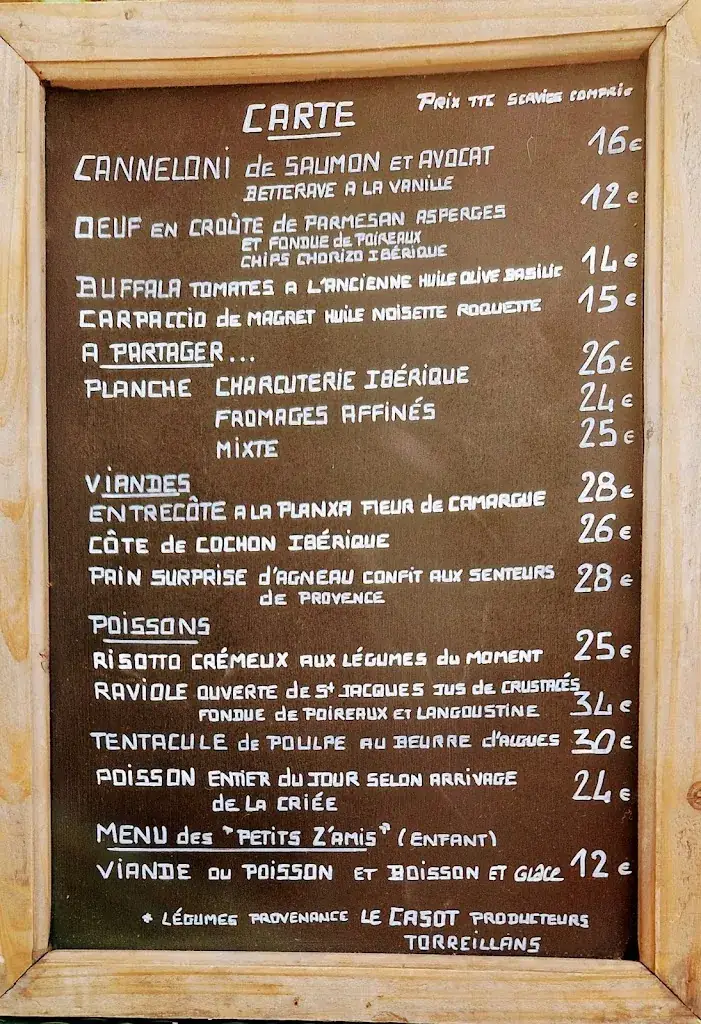 CARTE
PRIX TTC SERVICE COMPRIS
CANNELONI de SAUMON ET AVOCAT 16€
BETTERAVE A LA VANILLE
OEUF EN CROÛTE de PARMESAN ASPERGES 12€
ET FONDUE de POIREAUX
CHIPS CHORIZO IBÉRIQUE
BUFFALA TOMATES A L'ANCIENNE HUILE OLIVE BASILIC 14€
CARPACCIO de MAGRET HUILE NOISETTE ROQUETTE 15€
A PARTAGER...
PLANCHE CHARCUTERIE IBÉRIQUE 26€
FROMAGES AFFINÉS 24€
MIXTE 25€
VIANDES
ENTRECÔTE A LA PLANXA FLEUR de CAMARGUE 28€
CÔTE de COCHON IBÉRIQUE 26€
PAIN SURPRISE d'AGNEAU CONFIT AUX SENTEURS 28€
de PROVENCE
POISSONS
RISOTTO CRÉMEUX AUX LÉGUMES du MOMENT 25€
RAVIOLE OUVERTE de St JACQUES JUS de CRUSTACÉS
FONDUE de POIREAUX ET LANGOUSTINE 34€
TENTACULE de POULPE AU BEURRE d'ALGUES 30€
POISSON ENTIER du JOUR SELON ARRIVAGE 24€
de LA CRIÉE
MENU des "PETITS Z'AMIS" (ENFANT)
VIANDE OU POISSON ET BOISSON ET GLACE 12€
* LÉGUMES PROVENANCE LE CASOT PRODUCTEURS
TORREILLANS